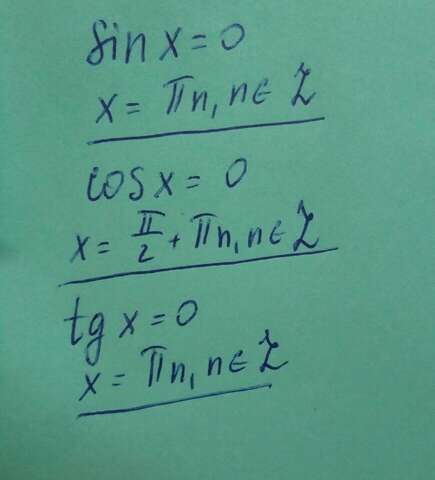 sin x = 0
x = πn, n ∈ Z
cos x = 0
x = π/2 + πn, n ∈ Z
tg x = 0
x = πn, n ∈ Z